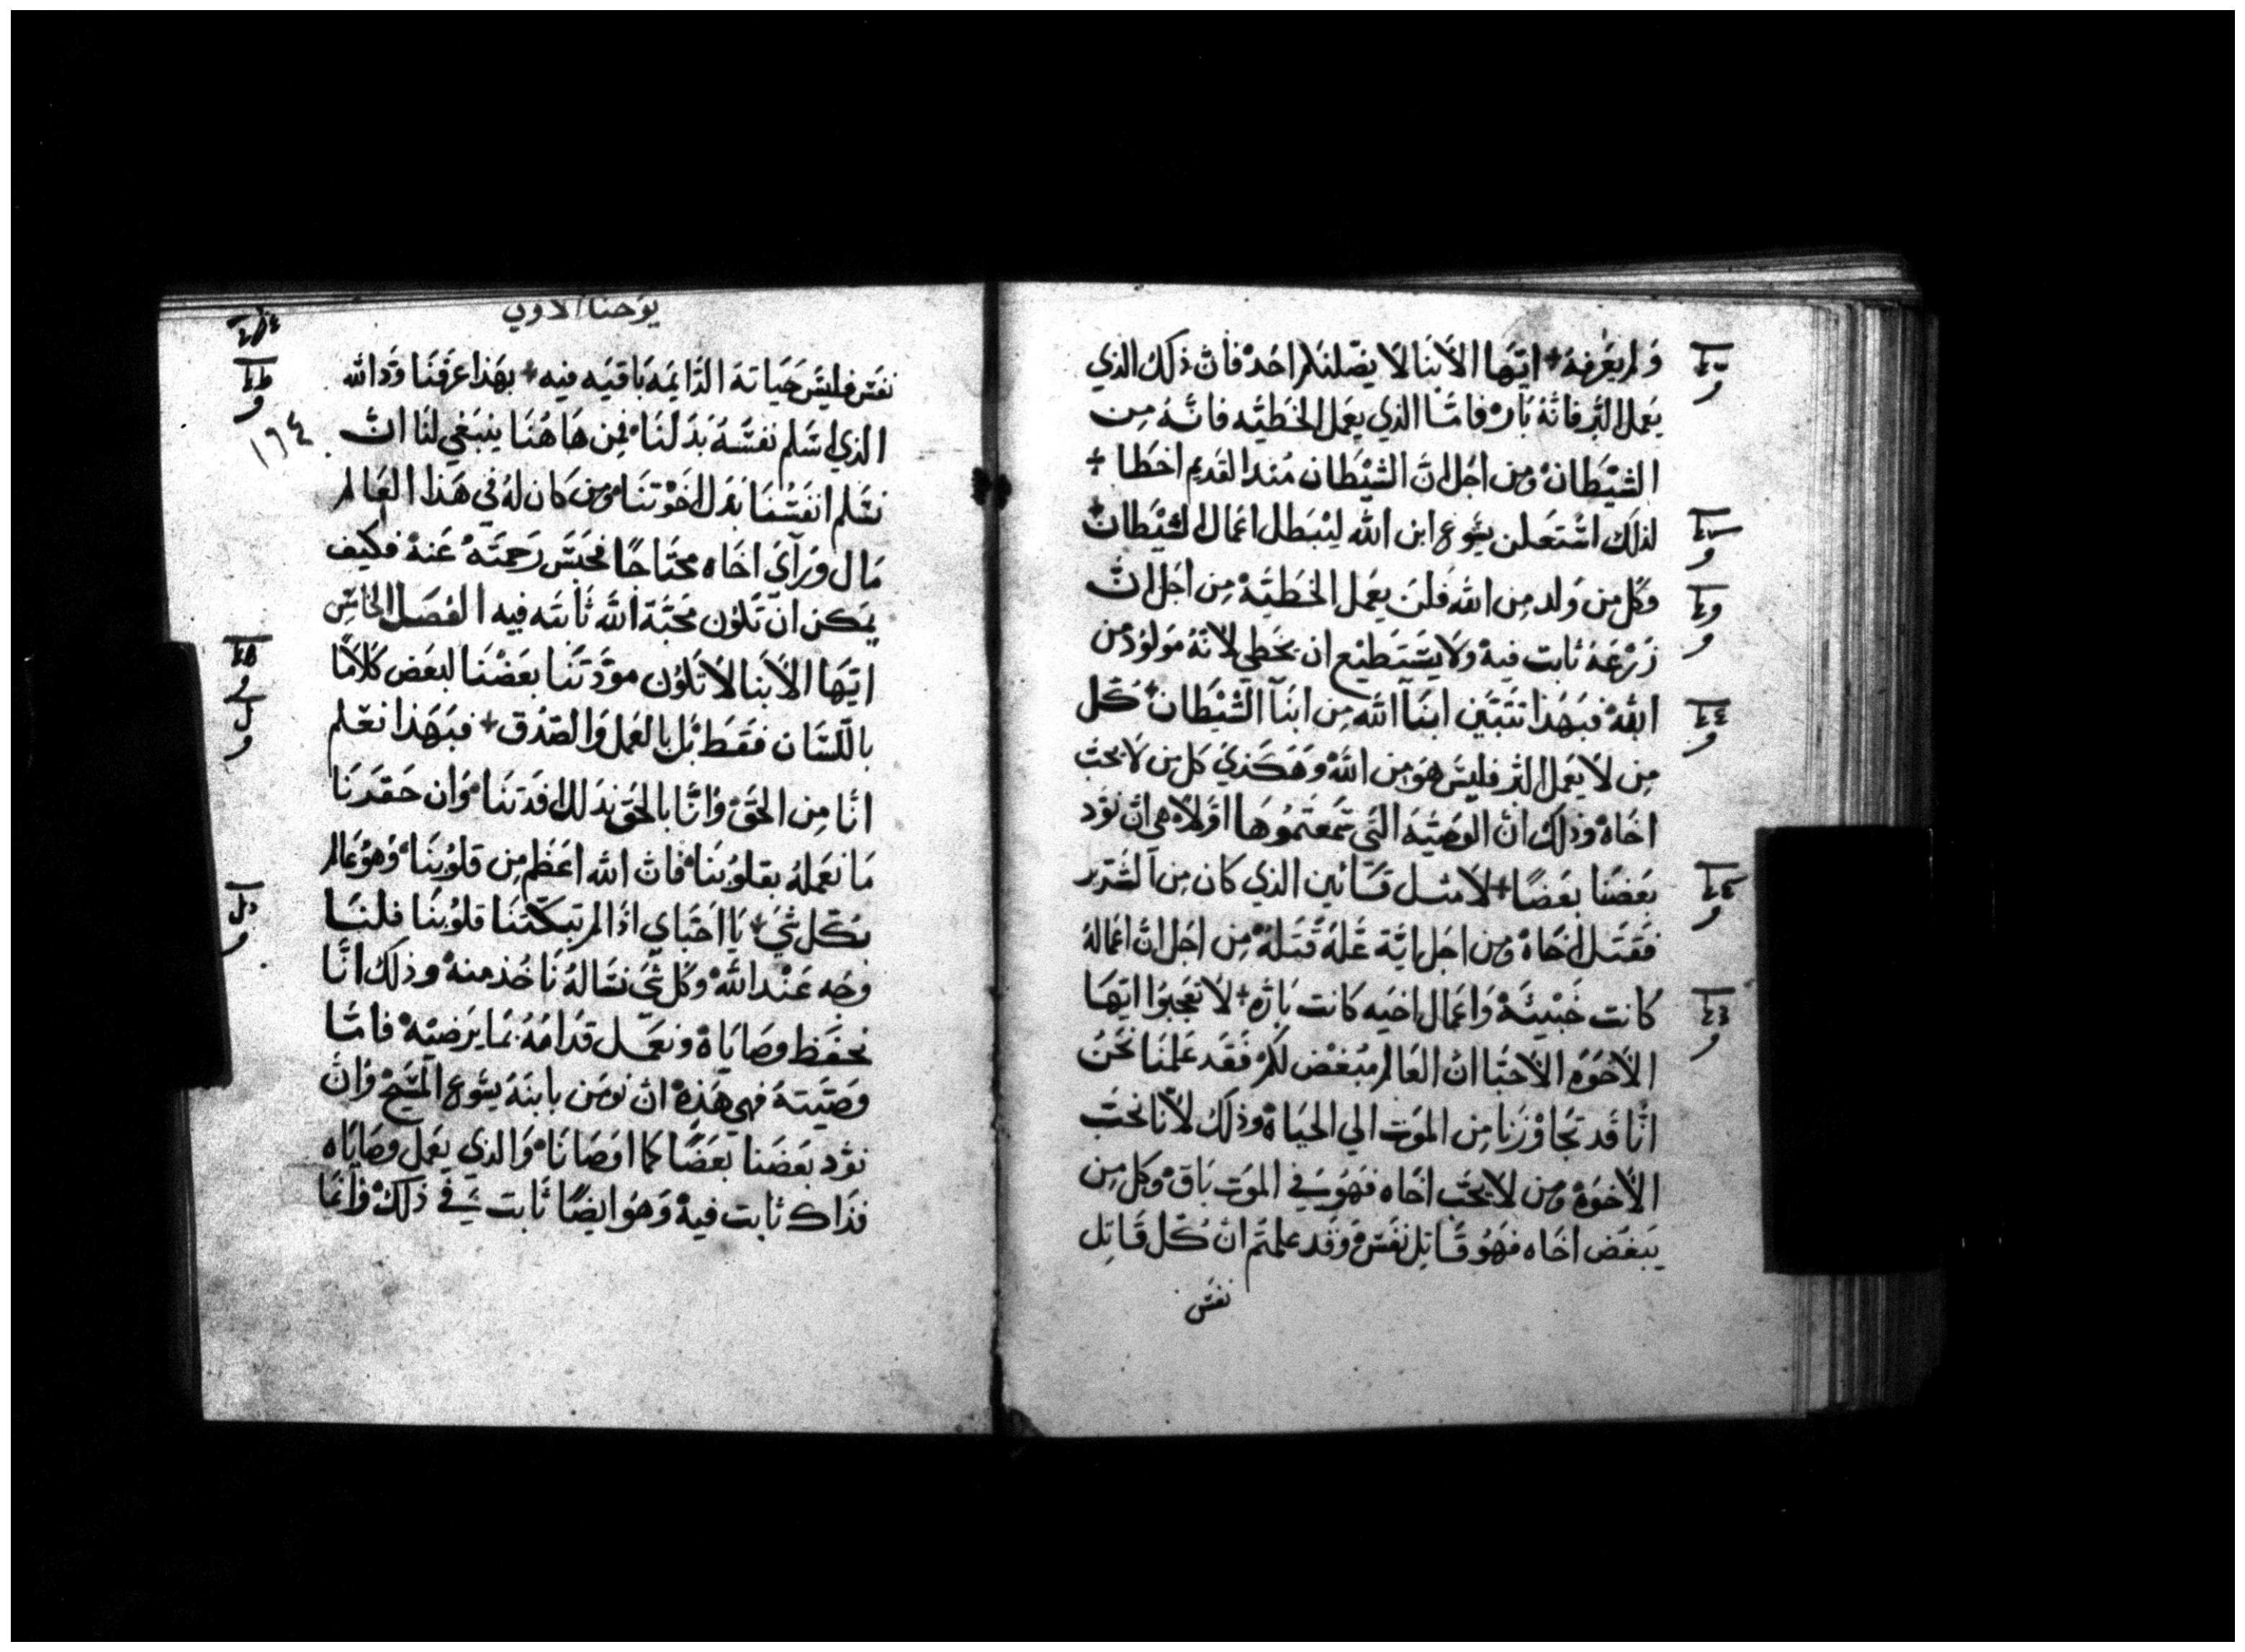 ولم يعرفه ايها الابنا لا يضلنكم احد فان ذلك الذي
يعمل البر فانه بار فاما الذي يعمل الخطيه فانه من
الشيطان ومن اجل ان الشيطان منذ القديم اخطا
لذلك اشتعلن يسوع ابن الله ليبطل اعمال الشيطان
وكل من ولد من الله فلن يعمل الخطية من اجل ان
زرعه ثابت فيه ولا يستطيع ان يخطي لانه مولود من
الله فبهذا نتبين ابنآ الله من ابنآ الشيطان كل
من لا يعمل البر فليس هو من الله وهكذي كل من لا يحب
اخاه وذلك ان الوصيه التي سمعتموها اولا هي ان نود
بعضنا بعضا لا مثل قائين الذي كان من الشرير
فقتل اخاه ومن اجل اية علة قتله من اجل ان اعماله
كانت خبيثه واعمال اخيه كانت باره لا تعجبوا ايها
الاخوه الاحبا ان العالم مبغض لكم فقد علمنا نحن
انا قد تجاوزنا من الموت الي الحياة وذلك لانا نحب
الاخوه ومن لا يحب اخاه فهو في الموت باق وكل من
يبغض اخاه فهو قاتل نفس وقد علمتم ان كل قاتل
نفس
يوحنا الاولي
نفس فليس حياته الدايمه باقيه فيه بهذا عرفنا ود الله
١٦٤
الذي اسلم نفسه بدلنا فمن هاهنا ينبغي لنا ان
نسلم انفسنا بدل اخوتنا ومن كان له في هذا العالم
مال ورآي اخاه محتاجا فحبس رحمته عنه فكيف
يمكن ان تكون محبة الله ثابته فيه الفصل الخامس
ايها الابنا لا تكون مودتنا بعضنا لبعض كلاما
باللسان فقط بل بالعمل والصدق فبهذا نعلم
انا من الحق وانا بالحق بذلك افدتنا وان حقرنا
ما نعمله بقلوبنا فان الله اعظم من قلوبنا وهو عالم
بكل شي يا احباي اذا لم تبكتنا قلوبنا فلنا
وجه عند الله وكل شي نساله ناخذ منه وذلك انا
نحفظ وصاياه ونعمل قدامه بما يرضيه فاما
وصيته فهي هذه ان نومن بابنه يسوع المسيح وان
نود بعضنا بعضا كما اوصانا والذي يعمل وصاياه
فذاك ثابت فيه وهو ايضا ثابت في ذلك وانما